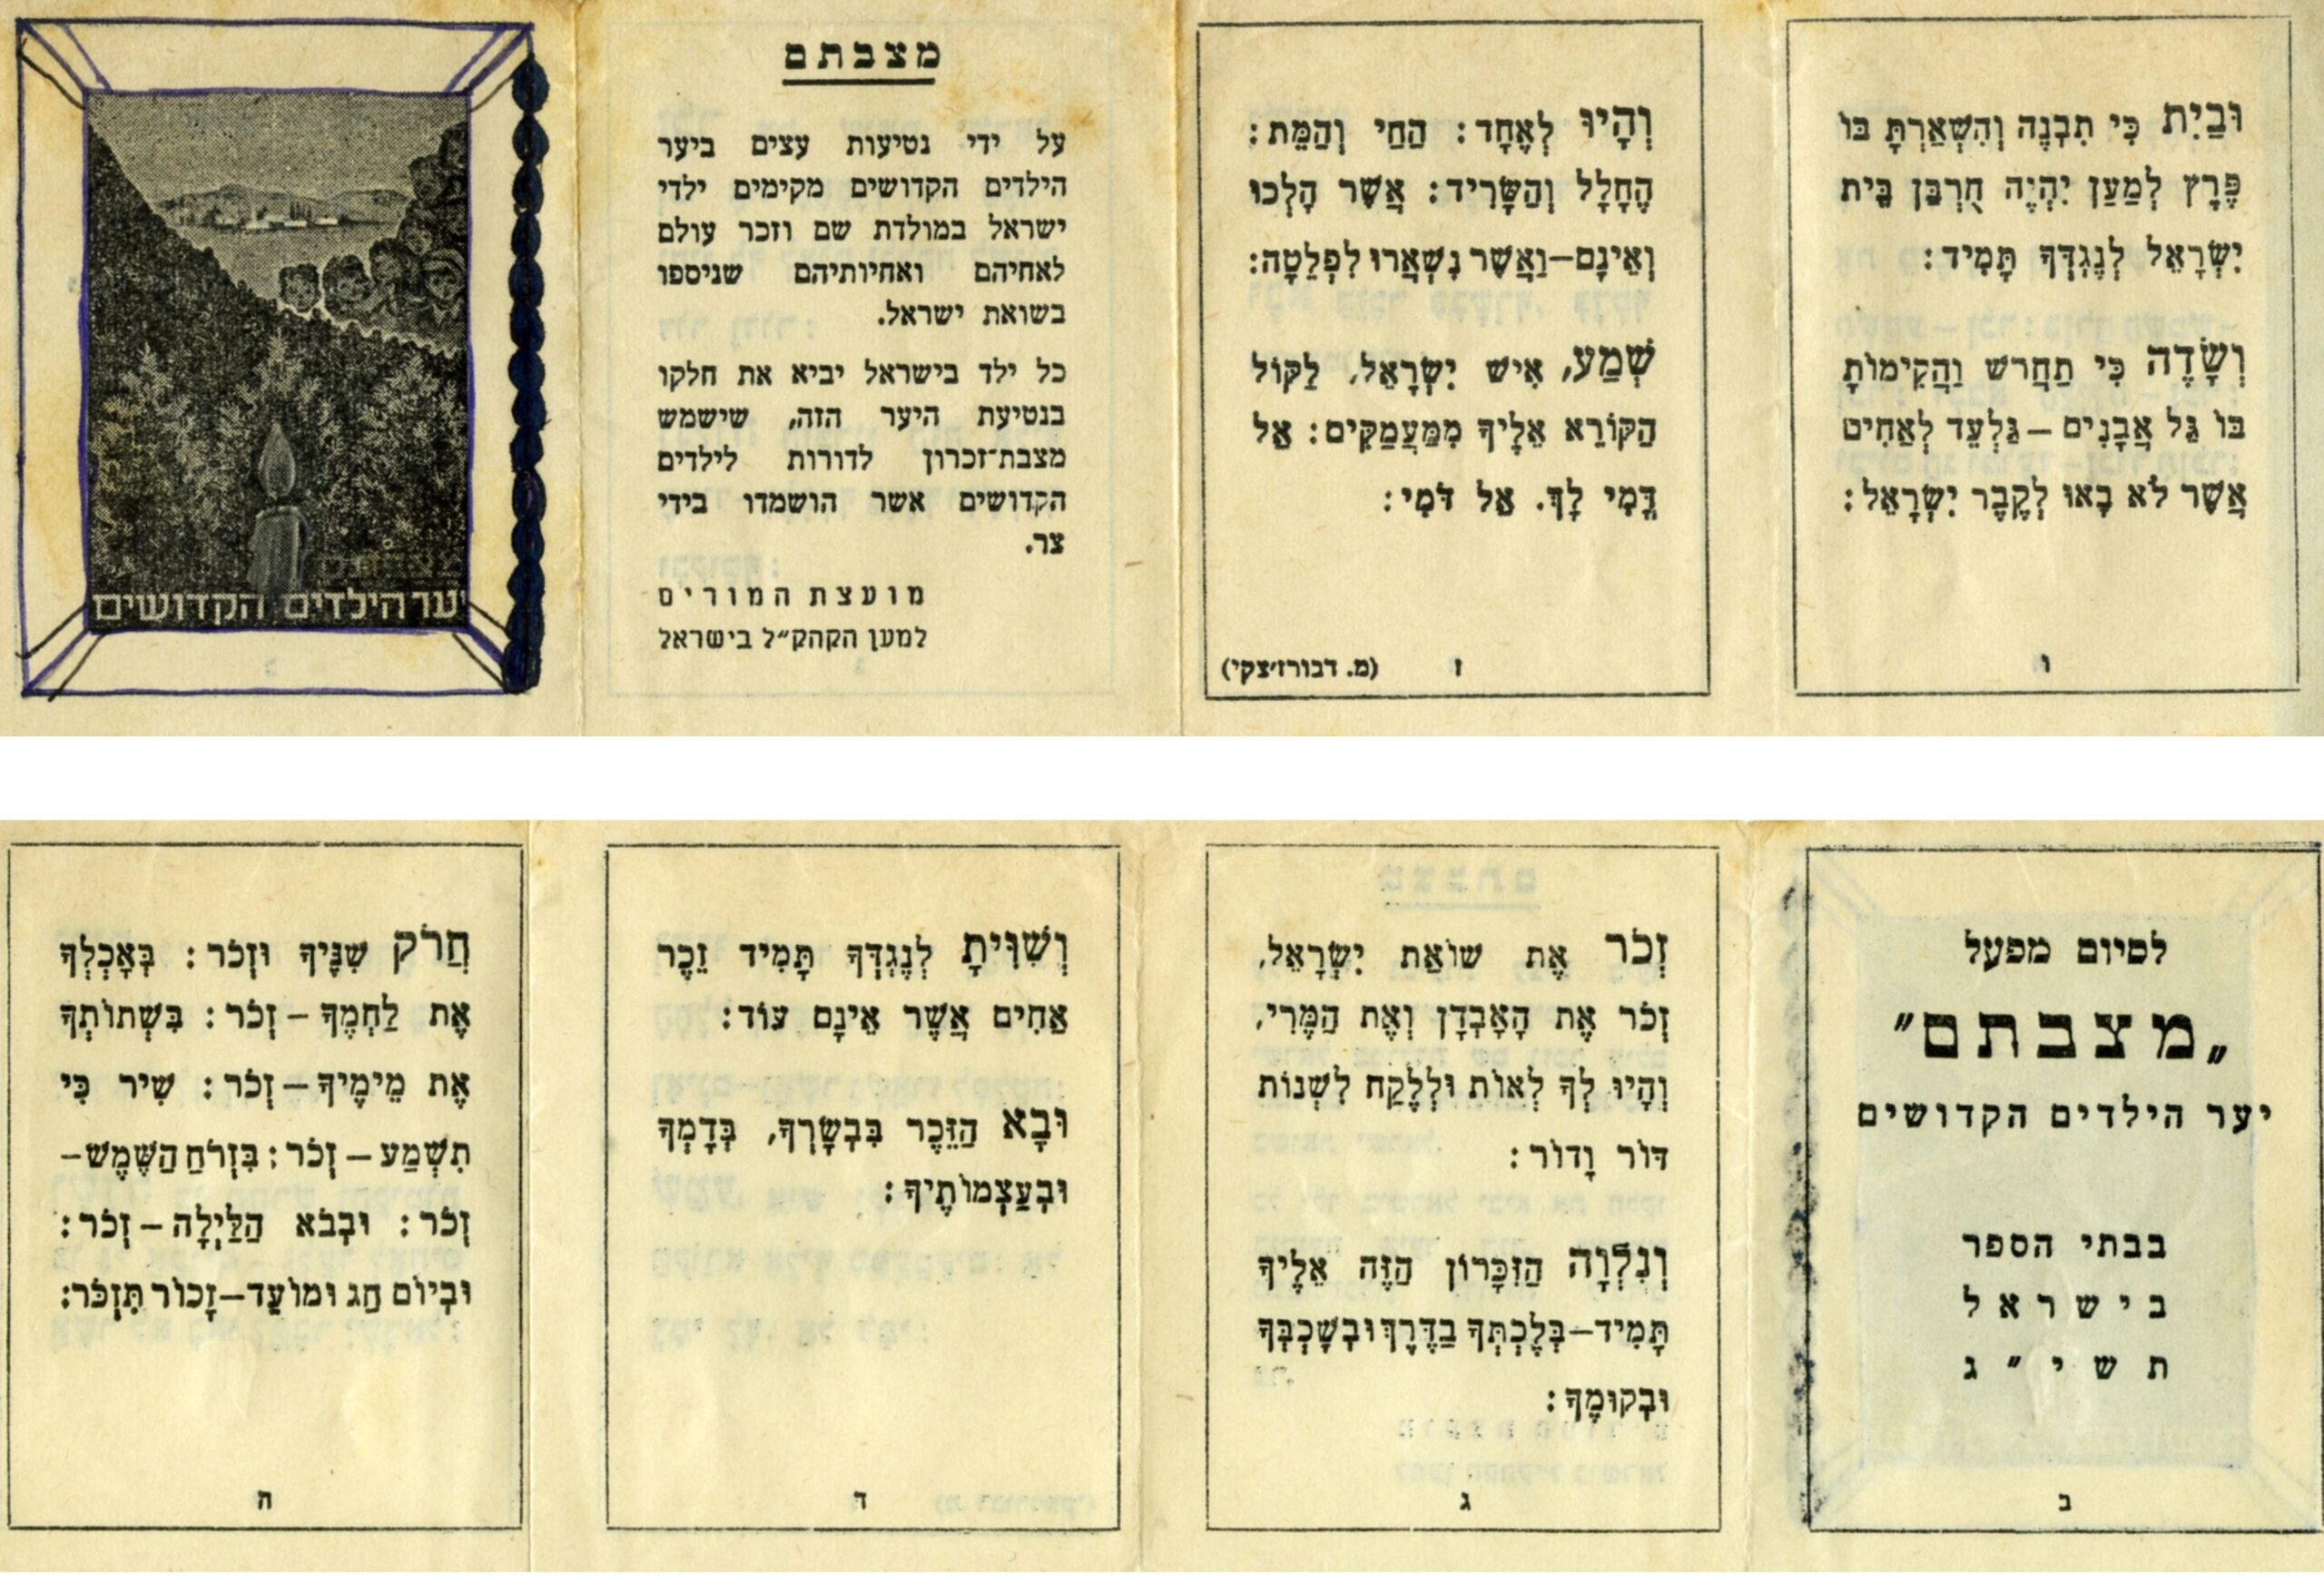 וּבַיִת כִּי תִבְנֶה וְהִשְׁאַרְתָּ בּוֹ
פֶּרֶץ לְמַעַן יִהְיֶה חֻרְבַּן בֵּית
יִשְׂרָאֵל לְנֶגְדְּךָ תָּמִיד:
וְשָׂדֶה כִּי תַחֲרשׁ וַהֲקִימוֹתָ
בּוֹ גַּל אֲבָנִים – גַּלְעֵד לְאַחִים
אֲשֶׁר לֹא בָאוּ לְקֶבֶר יִשְׂרָאֵל:
ו
וְהָיוּ לְאֶחָד: הַחַי וְהַמֵּת:
הֶחָלָל וְהַשָּׂרִיד: אֲשֶׁר הָלְכוּ
וְאֵינָם–וַאֲשֶׁר נִשְׁאֲרוּ לִפְלֵטָה:
שְׁמַע, אִישׁ יִשְׂרָאֵל, לַקּוֹל
הַקּוֹרֵא אֵלֶיךָ מִמַּעֲמַקִּים: אַל
דֳּמִי לָךְ. אַל דֳּמִי:
ז
(מ. דבורז׳צקי)
מצבתם
על ידי נטיעות עצים ביער
הילדים הקדושים מקימים ילדי
ישראל במולדת שם וזכר עולם
לאחיהם ואחיותיהם שניספו
בשואת ישראל.
כל ילד בישראל יביא את חלקו
בנטיעת היער הזה, שישמש
מצבת־זכרון לדורות לילדים
הקדושים אשר הושמדו בידי
צר.
מועצת המורים
למען הקהק״ל בישראל
יער הילדים הקדושים
לסיום מפעל
„מצבתם״
יער הילדים הקדושים
בבתי הספר
בישראל
תשי״ג
ב
זְכֹר אֶת שׁוֹאַת יִשְׂרָאֵל,
זְכֹר אֶת הָאָבְדָן וְאֶת הַמֶּרִי,
וְהָיוּ לְךָ לְאוֹת וּלְלֶקַח לִשְׁנוֹת
דּוֹר וָדוֹר:
וְנִלְוָה הַזִּכָּרוֹן הַזֶּה אֵלֶיךָ
תָּמִיד–בְּלֶכְתְּךָ בַדֶּרֶךְ וּבְשָׁכְבְּךָ
וּבְקוּמֶךָ:
ג
וְשִׁוִּיתָ לְנֶגְדְּךָ תָּמִיד זֵכֶר
אַחִים אֲשֶׁר אֵינָם עוֹד:
וּבָא הַזֵּכֶר בִּבְשָׂרְךָ, בְּדָמְךָ
וּבְעַצְמוֹתֶיךָ:
ד
חֲרֹק שִׁנֶּיךָ וּזְכֹר: בְּאָכְלְךָ
אֶת לַחְמֶךָ – זְכֹר: בִּשְׁתוֹתְךָ
אֶת מֵימֶיךָ – זְכֹר: שִׁיר כִּי
תִשְׁמַע – זְכֹר: בִּזְרֹחַ הַשֶּׁמֶשׁ–
זְכֹר: וּבְבֹא הַלַּיְלָה – זְכֹר:
וּבְיוֹם חַג וּמוֹעֵד–זָכוֹר תִּזְכֹּר:
ה